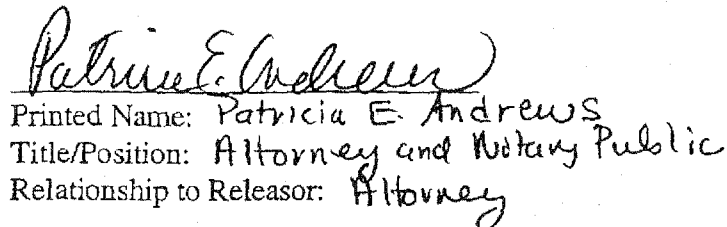 Patricia E. Andrews
Printed Name: Patricia E. Andrews
Title/Position: Attorney and Notary Public
Relationship to Releasor: Attorney